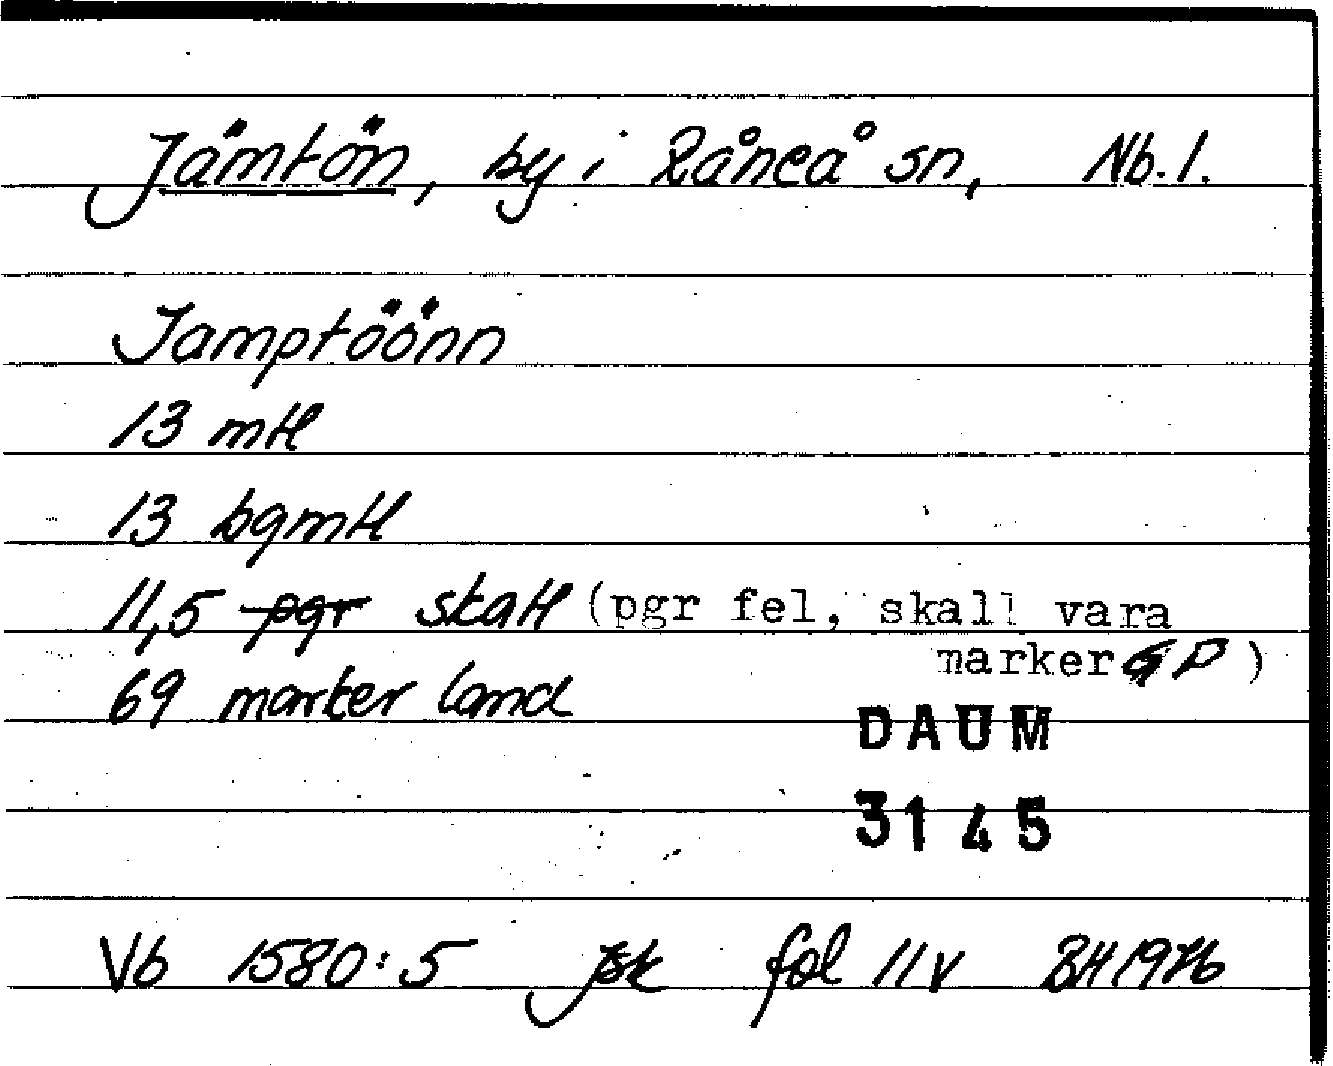 Jämtön, by i Råneå sn, Nb.l.
Jamptöönn
13 mtl
13 bgmtl
11,5 pgr skatt (pgr fel, skall vara
marker GP)
69 marker land
DAUM
3145
Vb 1580:5 Jsk fol 11v BH 1976